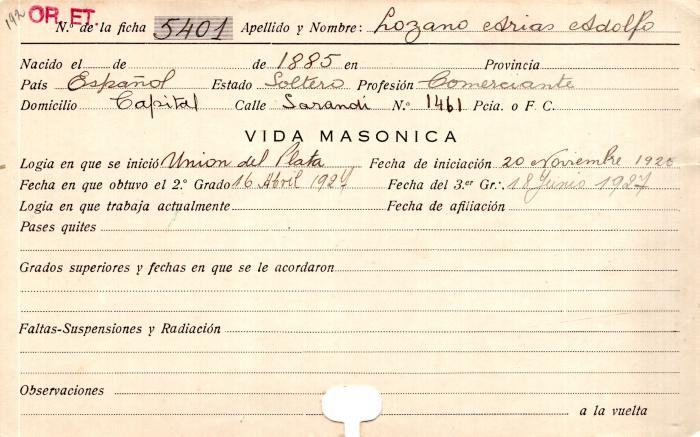 OR. ET
N.º de la ficha 5401 Apellido y Nombre: Lozano Arias Adolfo
Nacido el de de 1885 en Provincia
País Español Estado Soltero Profesión Comerciante
Domicilio Capital Calle Sarandí N.º 1461 Pcia. o F C.
VIDA MASONICA
Logia en que se inició Union del Plata Fecha de iniciación 20 Noviembre
Fecha en que obtuvo el 2.º Grado 16 Abril 1927 Fecha del 3.er Gr.: 18 Junio 1927
Logia en que trabaja actualmente Fecha de afiliación
Pases quites
Grados superiores y fechas en que se le acordaron
Faltas-Suspensiones y Radiación
Observaciones
a la vuelta